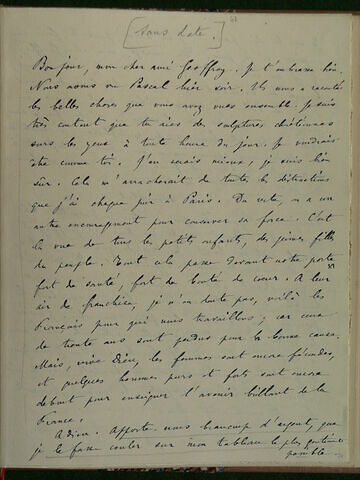 [sans date.]
Bonjour, mon cher ami Geoffroy. Je t'embrasse bien.
Nous avons vu Pascal hier soir. Il nous a raconté
les belles choses que vous avez vues ensemble. Je suis
très content que tu aies des sculptures chrétiennes
sous les yeux à toute heure du jour. Je voudrais
être comme toi. J'en serais mieux, je suis bien
sûr. Cela m'arracherait de toutes les distractions
que j'ai chaque jour à Paris. Du reste, on a un
autre encouragement pour conserver sa force. C'est
la vue de tous les petits enfants, des jeunes filles
du peuple. Tout cela passe devant notre porte
fort de santé, fort de bonté de cœur. A leur
air de franchise, je n'en doute pas, voilà les
Français pour qui nous travaillons ; car ceux
de trente ans sont perdus pour la bonne cause.
Mais, vive Dieu, les femmes sont encore fécondes,
et quelques hommes purs et forts sont encore
debout pour enseigner l'avenir brillant de la
France.
Adieu. Apporte-nous beaucoup d'argent, que
je le fasse couler sur mon tableau le plus
possible.